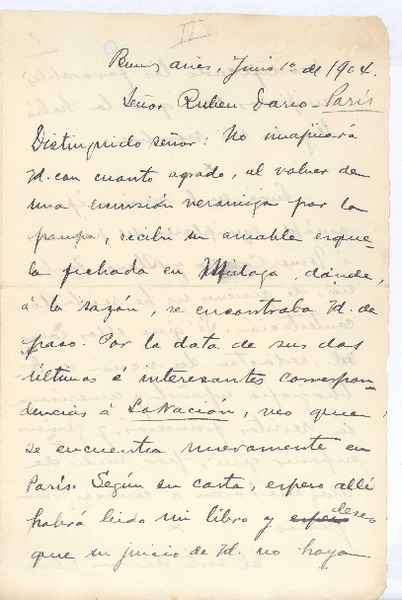 II
Buenos Aires, Junio 1º de 1904.
Señor Ruben Dario - Paris
Distinguido señor: No imajinará
Ud. con cuanto agrado, al volver de
una escursión veraniega por la
pampa, recibí su amable esque-
la fechada en Málaga, dónde,
á la razón, se encontraba Ud. de
paso. Por la data de sus dos
últimas é interesantes correspon-
dencias á La Nación, veo que
se encuentra nuevamente en
Paris. Según su carta, espero allí
habrá leido mi libro y deseo
que su juicio de Ud. no haya